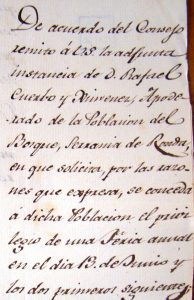 De acuerdo del Consejo
remito á VS la adjunta
instancia de D. Rafael
Cuerbo y Ximenez, Apode-
rado de la Poblacion del
Bosque, Serrania de Ronda,
en que solicita, por las razo-
nes que expresa, se conceda
á dicha Poblacion el privi-
legio de una Feria anual
en el dia 13. de Junio y
los dos primeros siguientes,